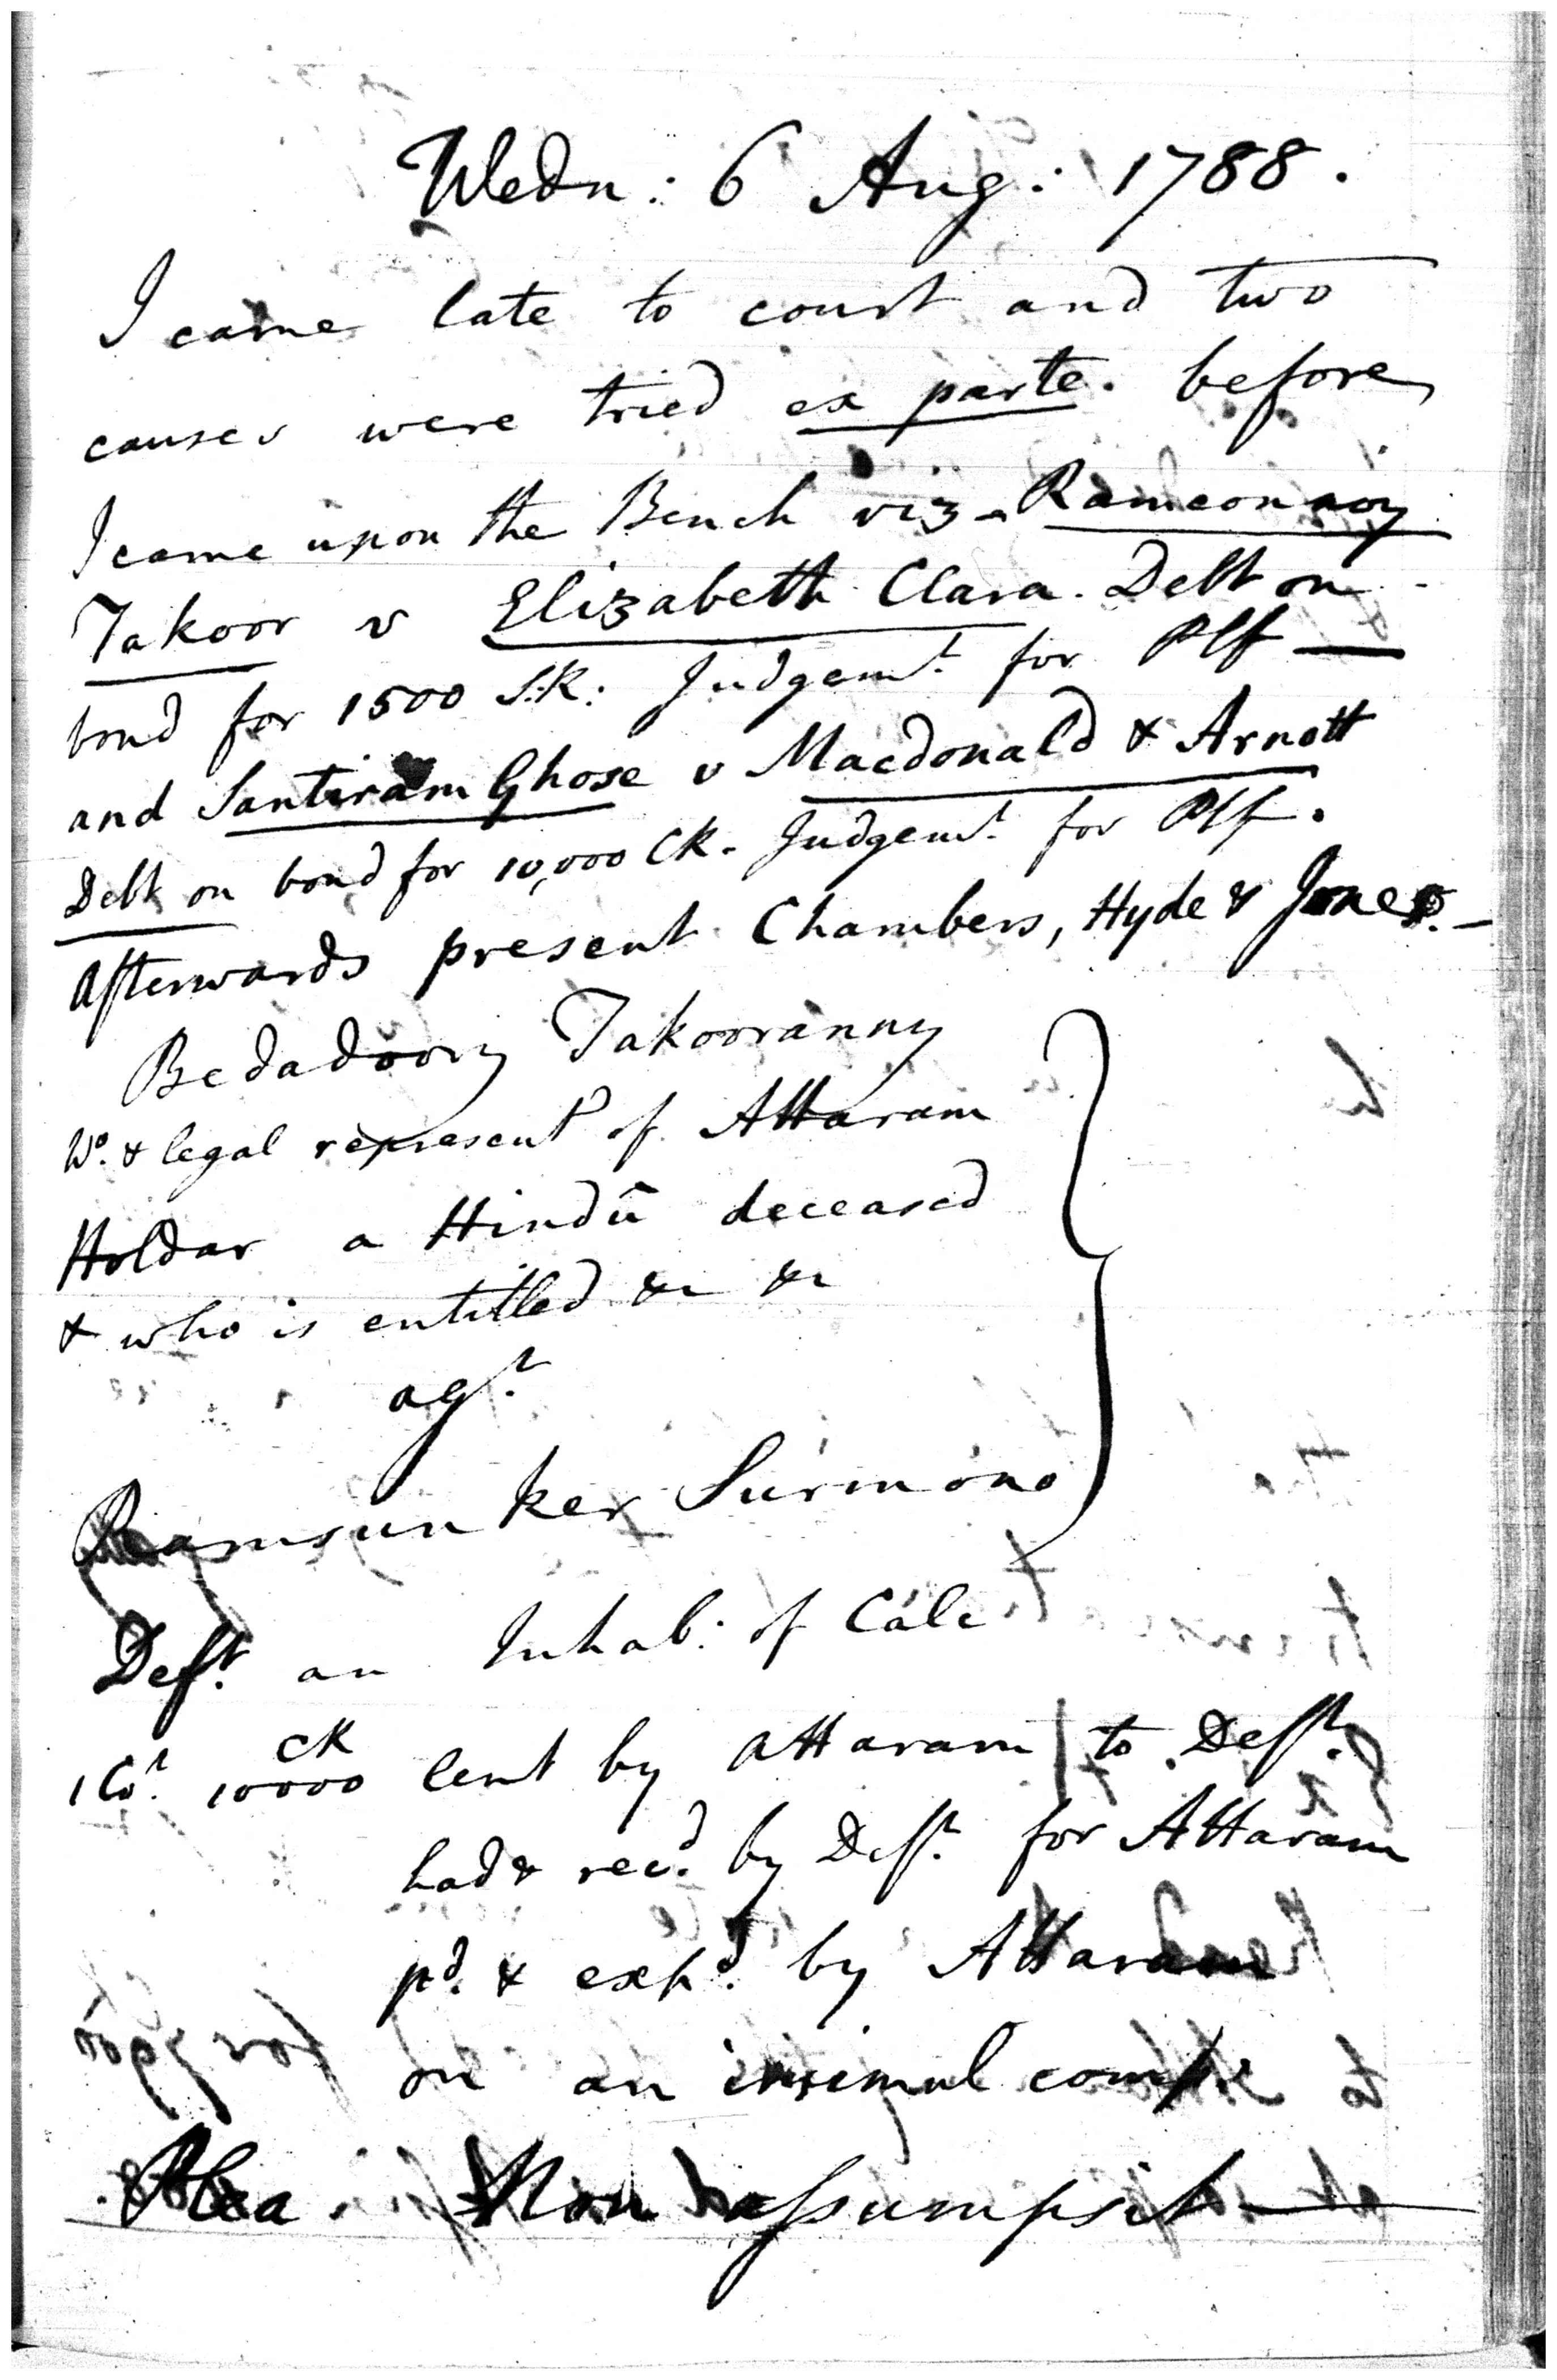 Wedn: 6 Aug: 1788.
I came late to court and two
causes were tried ex parte. before
I came upon the Bench viz. Rameonnoy
Takoor v Elizabeth Clara. Debt on
bond for 1500 S.R: Judgemt. for Plf —
and Santiram Ghose v Macdonald & Arnott
Debt on bond for 10,000 CR. Judgemt. for Plf.
Afterwards present Chambers, Hyde & Jones. —
Bedadoory Takooranny
Wo. & legal represent of Attaram
Holdar a Hindû deceased
& who is entitled &c &c
agt.
Ramsunker Surmono
Deft. an Inhab: of Calc
CR
1 Cot. 10000 lent by Attaram to Deft.
had & recd. by Deft. for Attaram
pd. & expd. by Attaram
on an insimul comp.
Plea Non assumpsit —